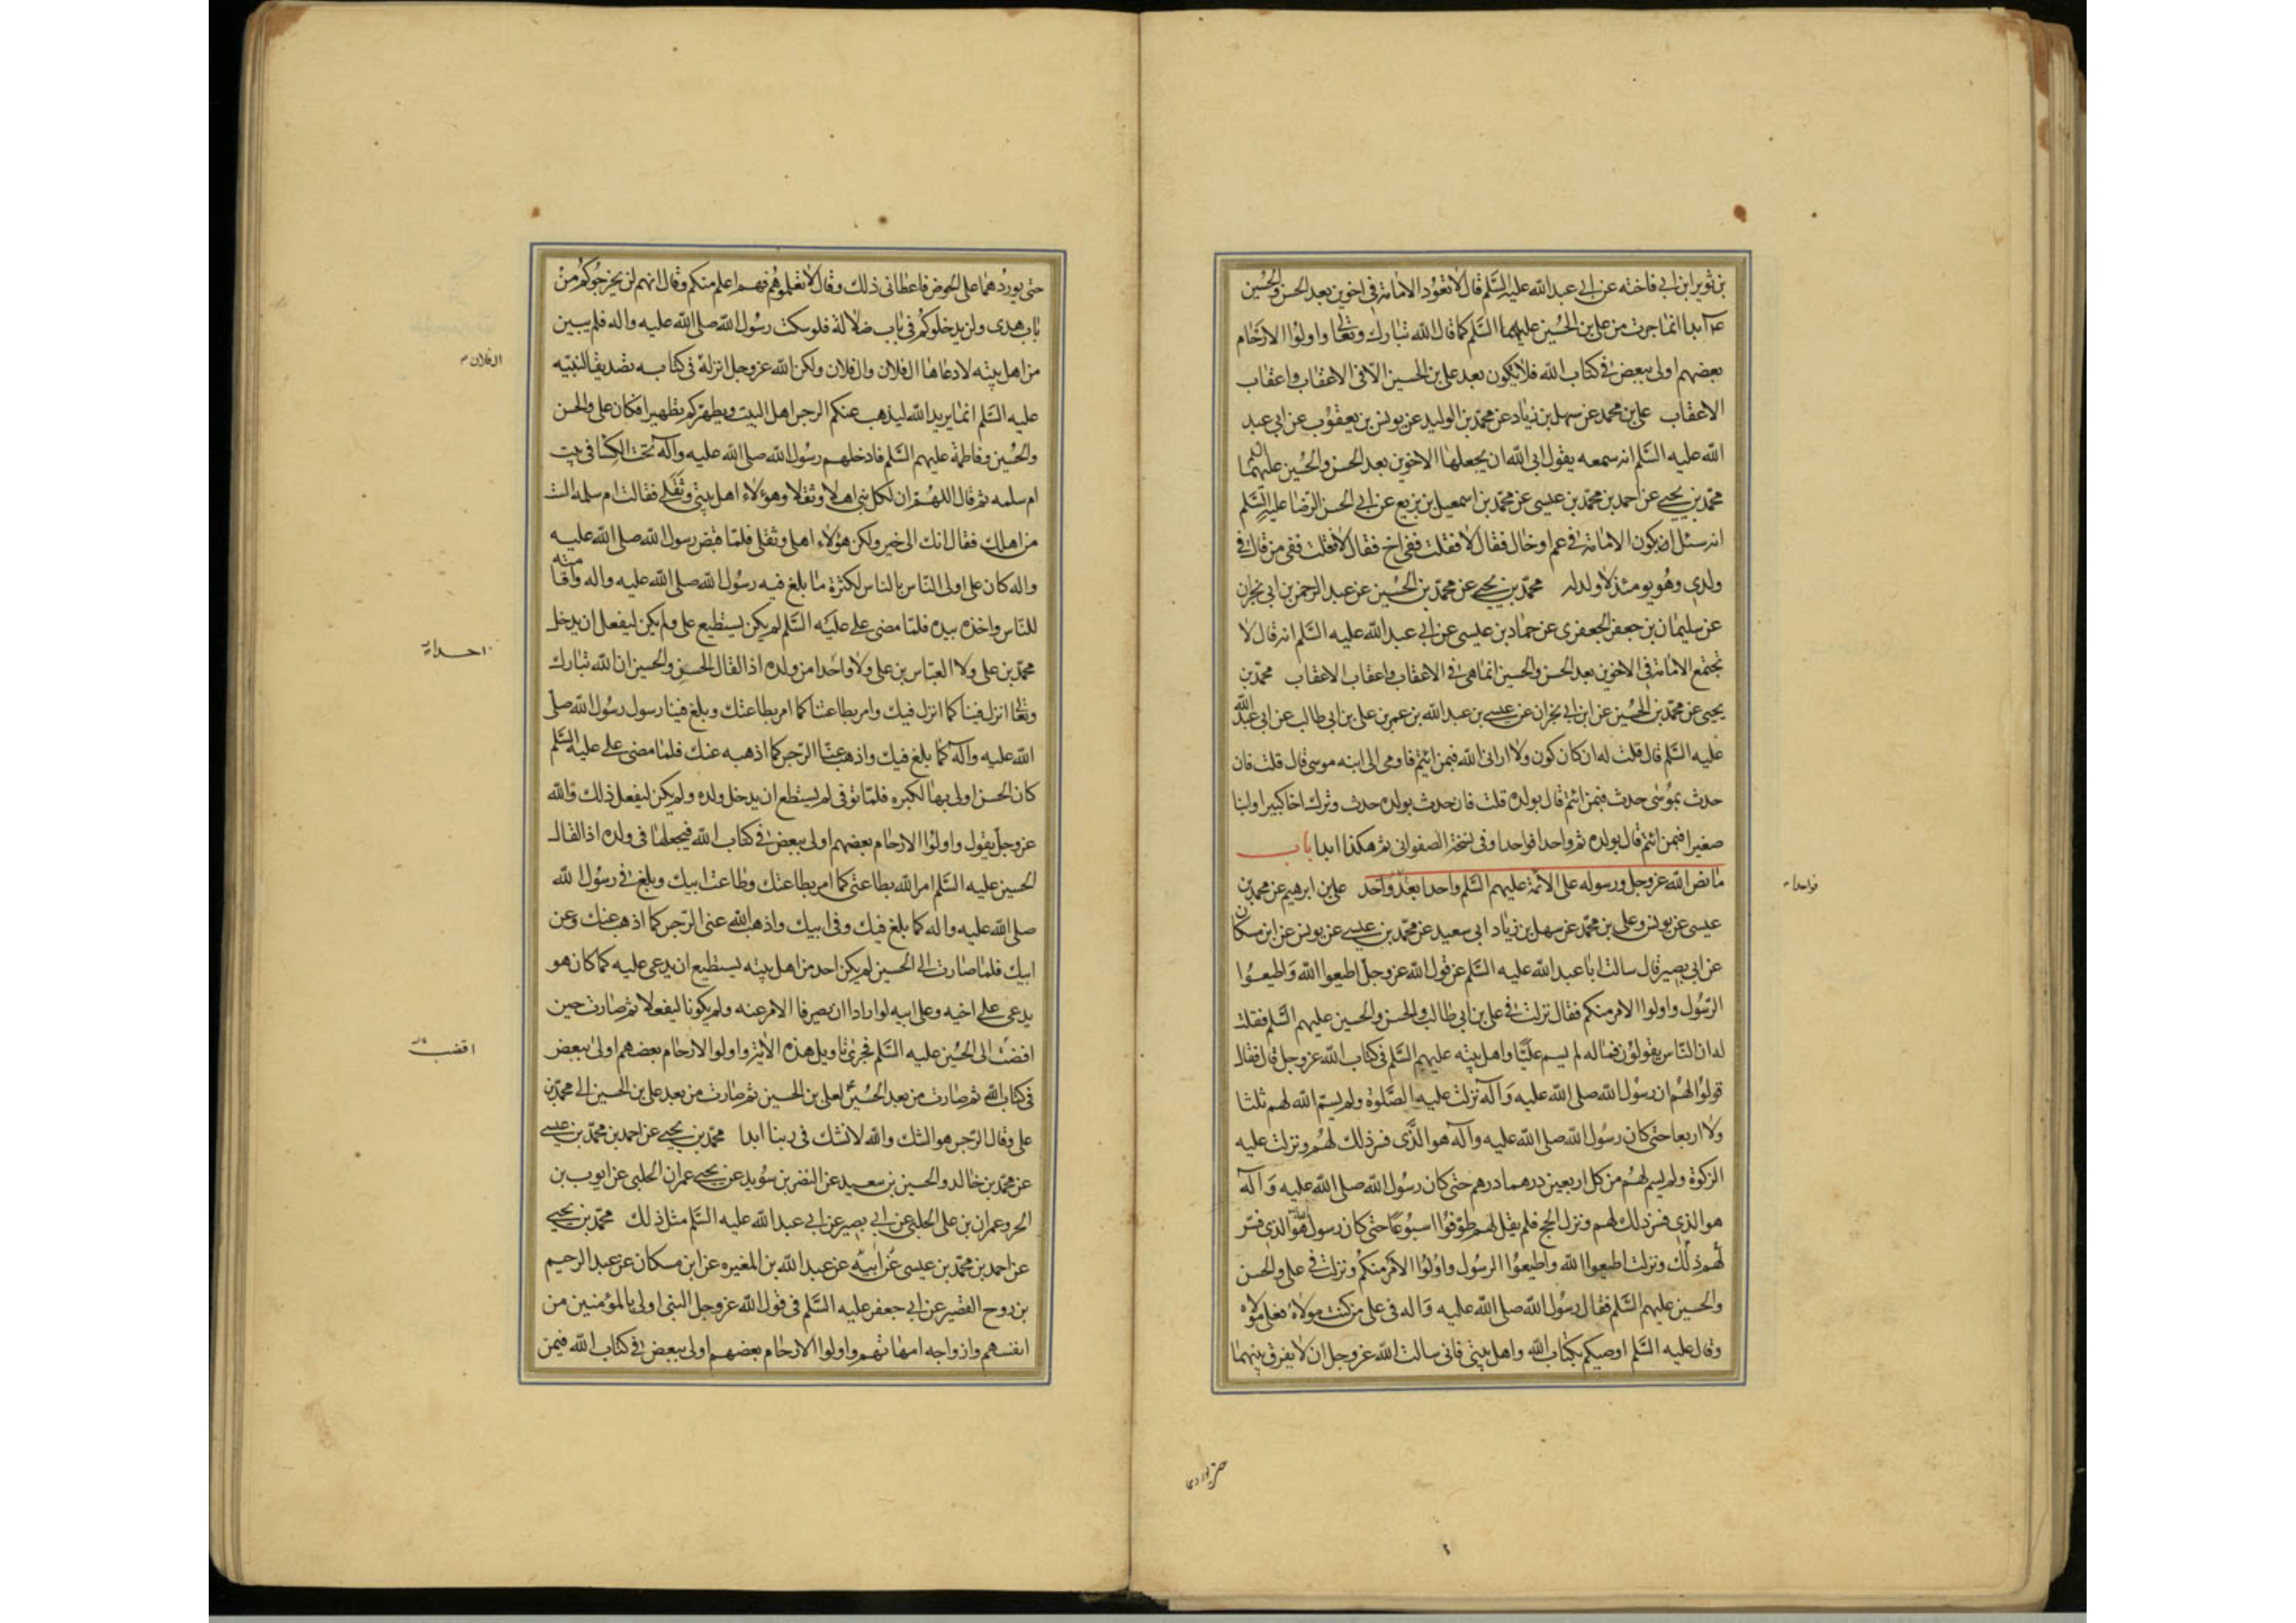 بن ثوير ابن ابي فاخته عن ابي عبد الله عليه السلم قال لا تعود الامامة في اخوين بعد الحسن والحسين
ابدا انما جرت من علي بن الحسين عليهما السلم كما قال الله تبارك وتعالى واولوا الارحام
بعضهم اولى ببعض في كتاب الله فلا يكون بعد علي بن الحسين الا في الاعقاب واعقاب
الاعقاب علي بن محمد عن سهل بن زياد عن محمد بن الوليد عن يونس بن يعقوب عن ابي عبد
الله عليه السلم انه سمعه يقول ابى الله ان يجعلها لاخوين بعد الحسن والحسين عليهما
محمد بن يحيى عن احمد بن محمد بن عيسى عن محمد بن اسمعيل بن بزيع عن ابي الحسن الرضا عليه السلم
انه سئل ايكون الامامة في عم او خال فقال لا فقلت ففي اخ فقال لا فقلت ففي من قال في
ولدي وهو يومئذ لا ولد له محمد بن يحيى عن محمد بن الحسين عن عبد الرحمن بن ابي نجران
عن سليمان بن جعفر الجعفري عن حماد بن عيسى عن ابي عبد الله عليه السلم انه قال لا
تجتمع الامامة في الاخوين بعد الحسن والحسين انما هي في الاعقاب واعقاب الاعقاب محمد بن
يحيى عن محمد بن الحسين عن ابن ابي نجران عن عيسى بن عبد الله بن عمر بن علي بن ابي طالب عن ابي عبد الله
عليه السلم قال قلت له ان كان كون ولا اراني الله فبمن ائتم فاومى الى ابنه موسى قال قلت فان
حدث بموسى حدث فبمن ائتم قال بولده قلت فان حدث بولده حدث وترك اخا كبيرا وابنا
صغيرا فبمن ائتم قال بولده ثم واحدا فواحدا وفي نسخة الصفواني ثم هكذا ابدا باب
ما نص الله عز وجل ورسوله على الائمة عليهم السلم واحدا بعد واحد علي بن ابرهيم عن محمد بن
فواحدا
عيسى عن يونس وعلي بن محمد عن سهل بن زياد ابي سعيد عن محمد بن عيسى عن يونس عن ابن مسكان
عن ابي بصير قال سالت ابا عبد الله عليه السلم عن قول الله عز وجل اطيعوا الله واطيعوا
الرسول واولوا الامر منكم فقال نزلت في علي بن ابي طالب والحسن والحسين عليهم السلم فقلت
له ان الناس يقولون فما له لم يسم عليا واهل بيته عليهم السلم في كتاب الله عز وجل قال فقال
قولوا لهم ان رسول الله صلى الله عليه وآله نزلت عليه الصلوة ولم يسم الله لهم ثلثا
ولا اربعا حتى كان رسول الله صلى الله عليه وآله هو الذي فسر ذلك لهم ونزلت عليه
الزكوة ولم يسم لهم من كل اربعين درهما درهم حتى كان رسول الله صلى الله عليه وآله
هو الذي فسر ذلك لهم ونزل الحج فلم يقل لهم طوفوا اسبوعا حتى كان رسول الله هو الذي فسر
لهم ذلك ونزلت اطيعوا الله واطيعوا الرسول واولوا الامر منكم ونزلت في علي والحسن
والحسين عليهم السلم فقال رسول الله صلى الله عليه وآله في علي من كنت مولاه فعلي مولاه
وقال عليه السلم اوصيكم بكتاب الله واهل بيتي فاني سالت الله عز وجل ان لا يفرق بينهما
حتى يوردهما
حتى يوردهما على الحوض فاعطاني ذلك وقال لا تعلموهم فهم اعلم منكم وقال انهم لن يخرجوكم من
باب هدى ولن يدخلوكم في باب ضلالة فلو سكت رسول الله صلى الله عليه واله فلم يبين
من اهل بيته لادعاها ال فلان وال فلان ولكن الله عز وجل انزله في كتابه تصديقا لنبيه
ال فلان
عليه السلم انما يريد الله ليذهب عنكم الرجس اهل البيت ويطهركم تطهيرا فكان علي والحسن
والحسين وفاطمة عليهم السلم فادخلهم رسول الله صلى الله عليه وآله تحت الكساء في بيت
ام سلمه ثم قال اللهم ان لكل نبي اهلا وثقلا وهؤلاء اهل بيتي وثقلي فقالت ام سلمه الست
من اهلك فقال انك الى خير ولكن هؤلاء اهلي وثقلي فلما قبض رسول الله صلى الله عليه
واله كان علي اولى الناس بالناس لكثرة ما بلغ فيه رسول الله صلى الله عليه واله واقامته
للناس واخذه بيده فلما مضى علي عليه السلم لم يكن يستطيع علي ولم يكن ليفعل ان يدخل
محمد بن علي ولا العباس بن علي ولا واحدا من ولده اذا لقال الحسن والحسين ان الله تبارك
احدا
وتعالى انزل فينا كما انزل فيك وامر بطاعتنا كما امر بطاعتك وبلغ فينا رسول رسول الله صلى
الله عليه وآله كما بلغ فيك واذهب عنا الرجس كما اذهبه عنك فلما مضى علي عليه السلم
كان الحسن اولى بها لكبره فلما توفى لم يستطع ان يدخل ولده ولم يكن ليفعل ذلك والله
عز وجل يقول واولوا الارحام بعضهم اولى ببعض في كتاب الله فيجعلها في ولده اذا لقال
الحسين عليه السلم امر الله بطاعتي كما امر بطاعتك وطاعت ابيك وبلغ في رسول الله
صلى الله عليه واله كما بلغ فيك وفي ابيك واذهب الله عني الرجس كما اذهب عنك وعن
ابيك فلما صارت الى الحسين لم يكن احد من اهل بيته يستطيع ان يدعي عليه كما كان هو
يدعي على اخيه وعلى ابيه لو ارادا ان يصرفا الامر عنه ولم يكونا ليفعلا ثم صارت حين
افضت الى الحسين عليه السلم فجرى تاويل هذه الاية واولوا الارحام بعضهم اولى ببعض
في كتاب الله ثم صارت من بعد الحسين لعلي بن الحسين ثم صارت من بعد علي بن الحسين الى محمد بن
علي وقال الرجس هو الشك والله لا نشك في ربنا ابدا محمد بن يحيى عن احمد بن محمد بن عيسى
عن محمد بن خالد والحسين بن سعيد عن النضر بن سويد عن يحيى عمران الحلبي عن ايوب بن
الحر وعمران بن علي الحلبي عن ابي بصير عن ابي عبد الله عليه السلم مثل ذلك محمد بن يحيى
عن احمد بن محمد بن عيسى عن ابيه عن عبد الله بن المغيره عن ابن مسكان عن عبد الرحيم
بن روح القصير عن ابي جعفر عليه السلم في قول الله عز وجل النبي اولى بالمؤمنين من
انفسهم وازواجه امهاتهم واولوا الارحام بعضهم اولى ببعض في كتاب الله فيمن